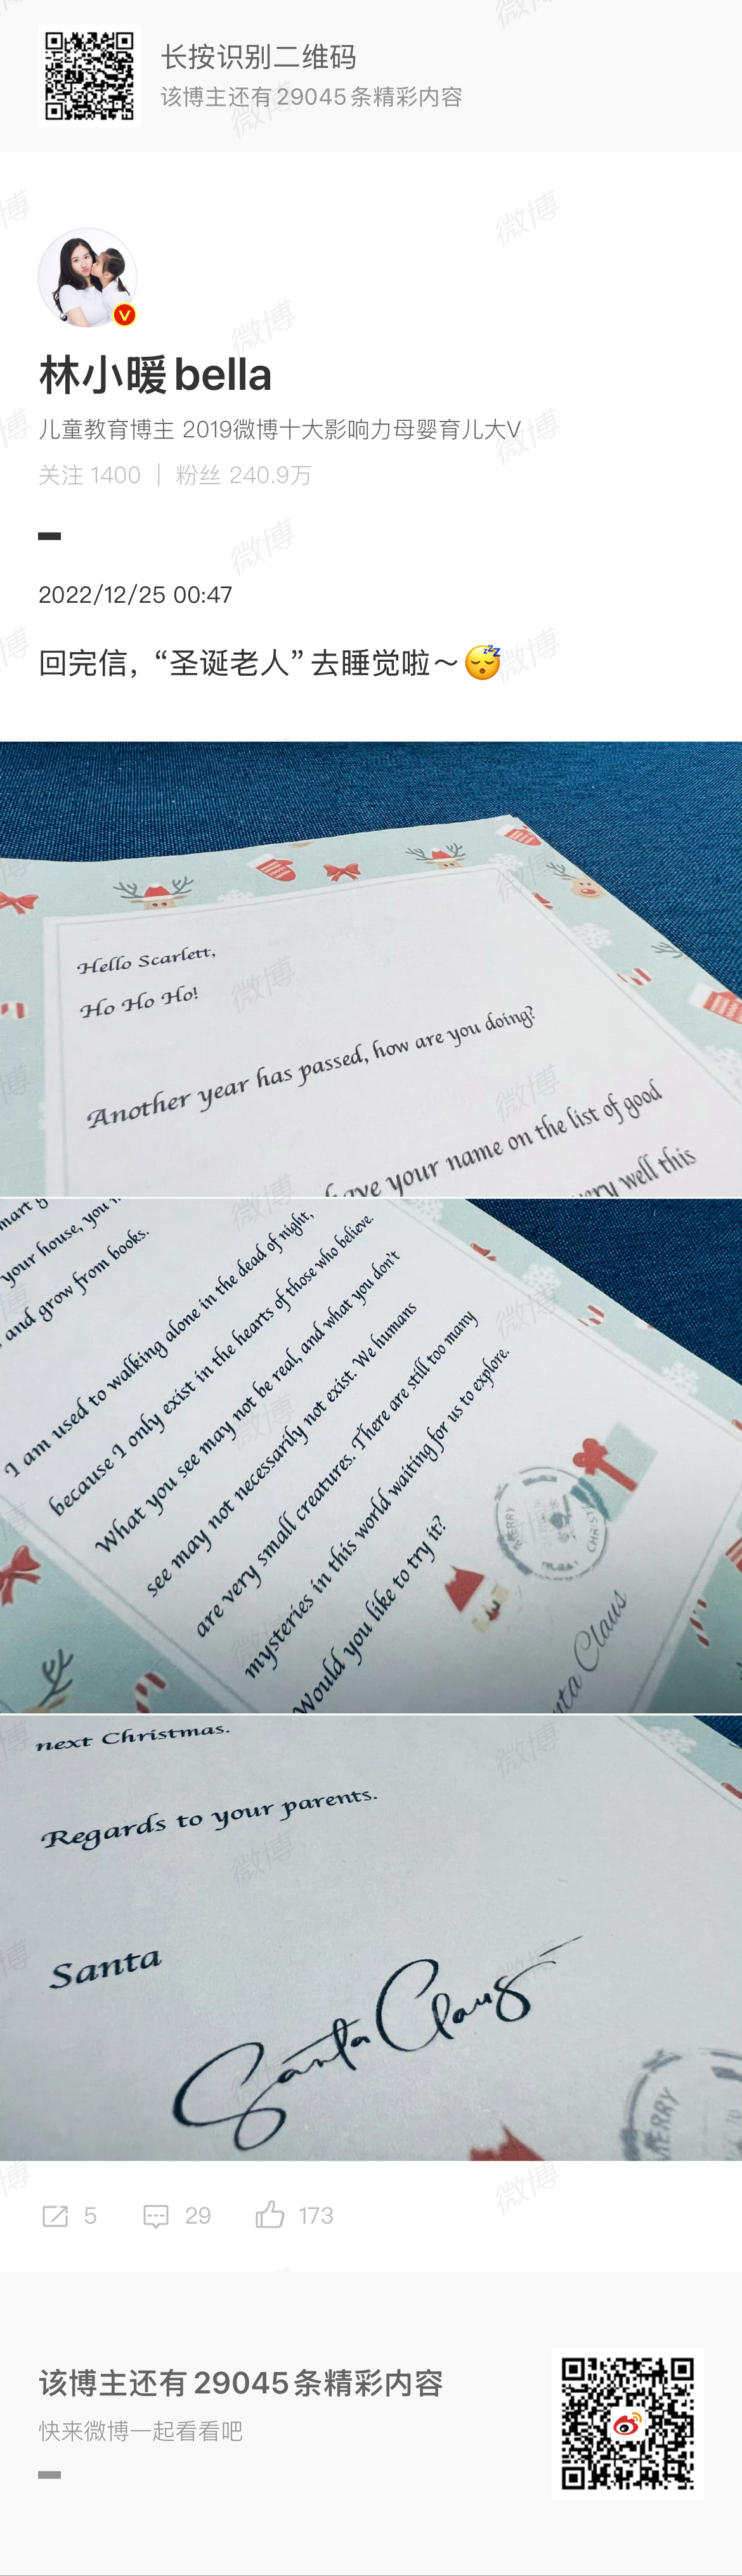 长按识别二维码
该博主还有29045条精彩内容
林小暖bella
儿童教育博主 2019微博十大影响力母婴育儿大V
关注 1400 | 粉丝 240.9万
2022/12/25 00:47
回完信，“圣诞老人”去睡觉啦～😴
Hello Scarlett,
Ho Ho Ho!
Another year has passed, how are you doing?
have your name on the list of good
very well this
your house, you
and grow from books.
I am used to walking alone in the dead of night,
because I only exist in the hearts of those who believe.
What you see may not be real, and what you don't
see may not necessarily not exist. We humans
are very small creatures. There are still too many
mysteries in this world waiting for us to explore.
Would you like to try it?
MERRY
CHRIST
nta Claus
next Christmas.
Regards to your parents.
Santa
Santa Claus
MERRY
5 29 173
该博主还有29045条精彩内容
快来微博一起看看吧
微博